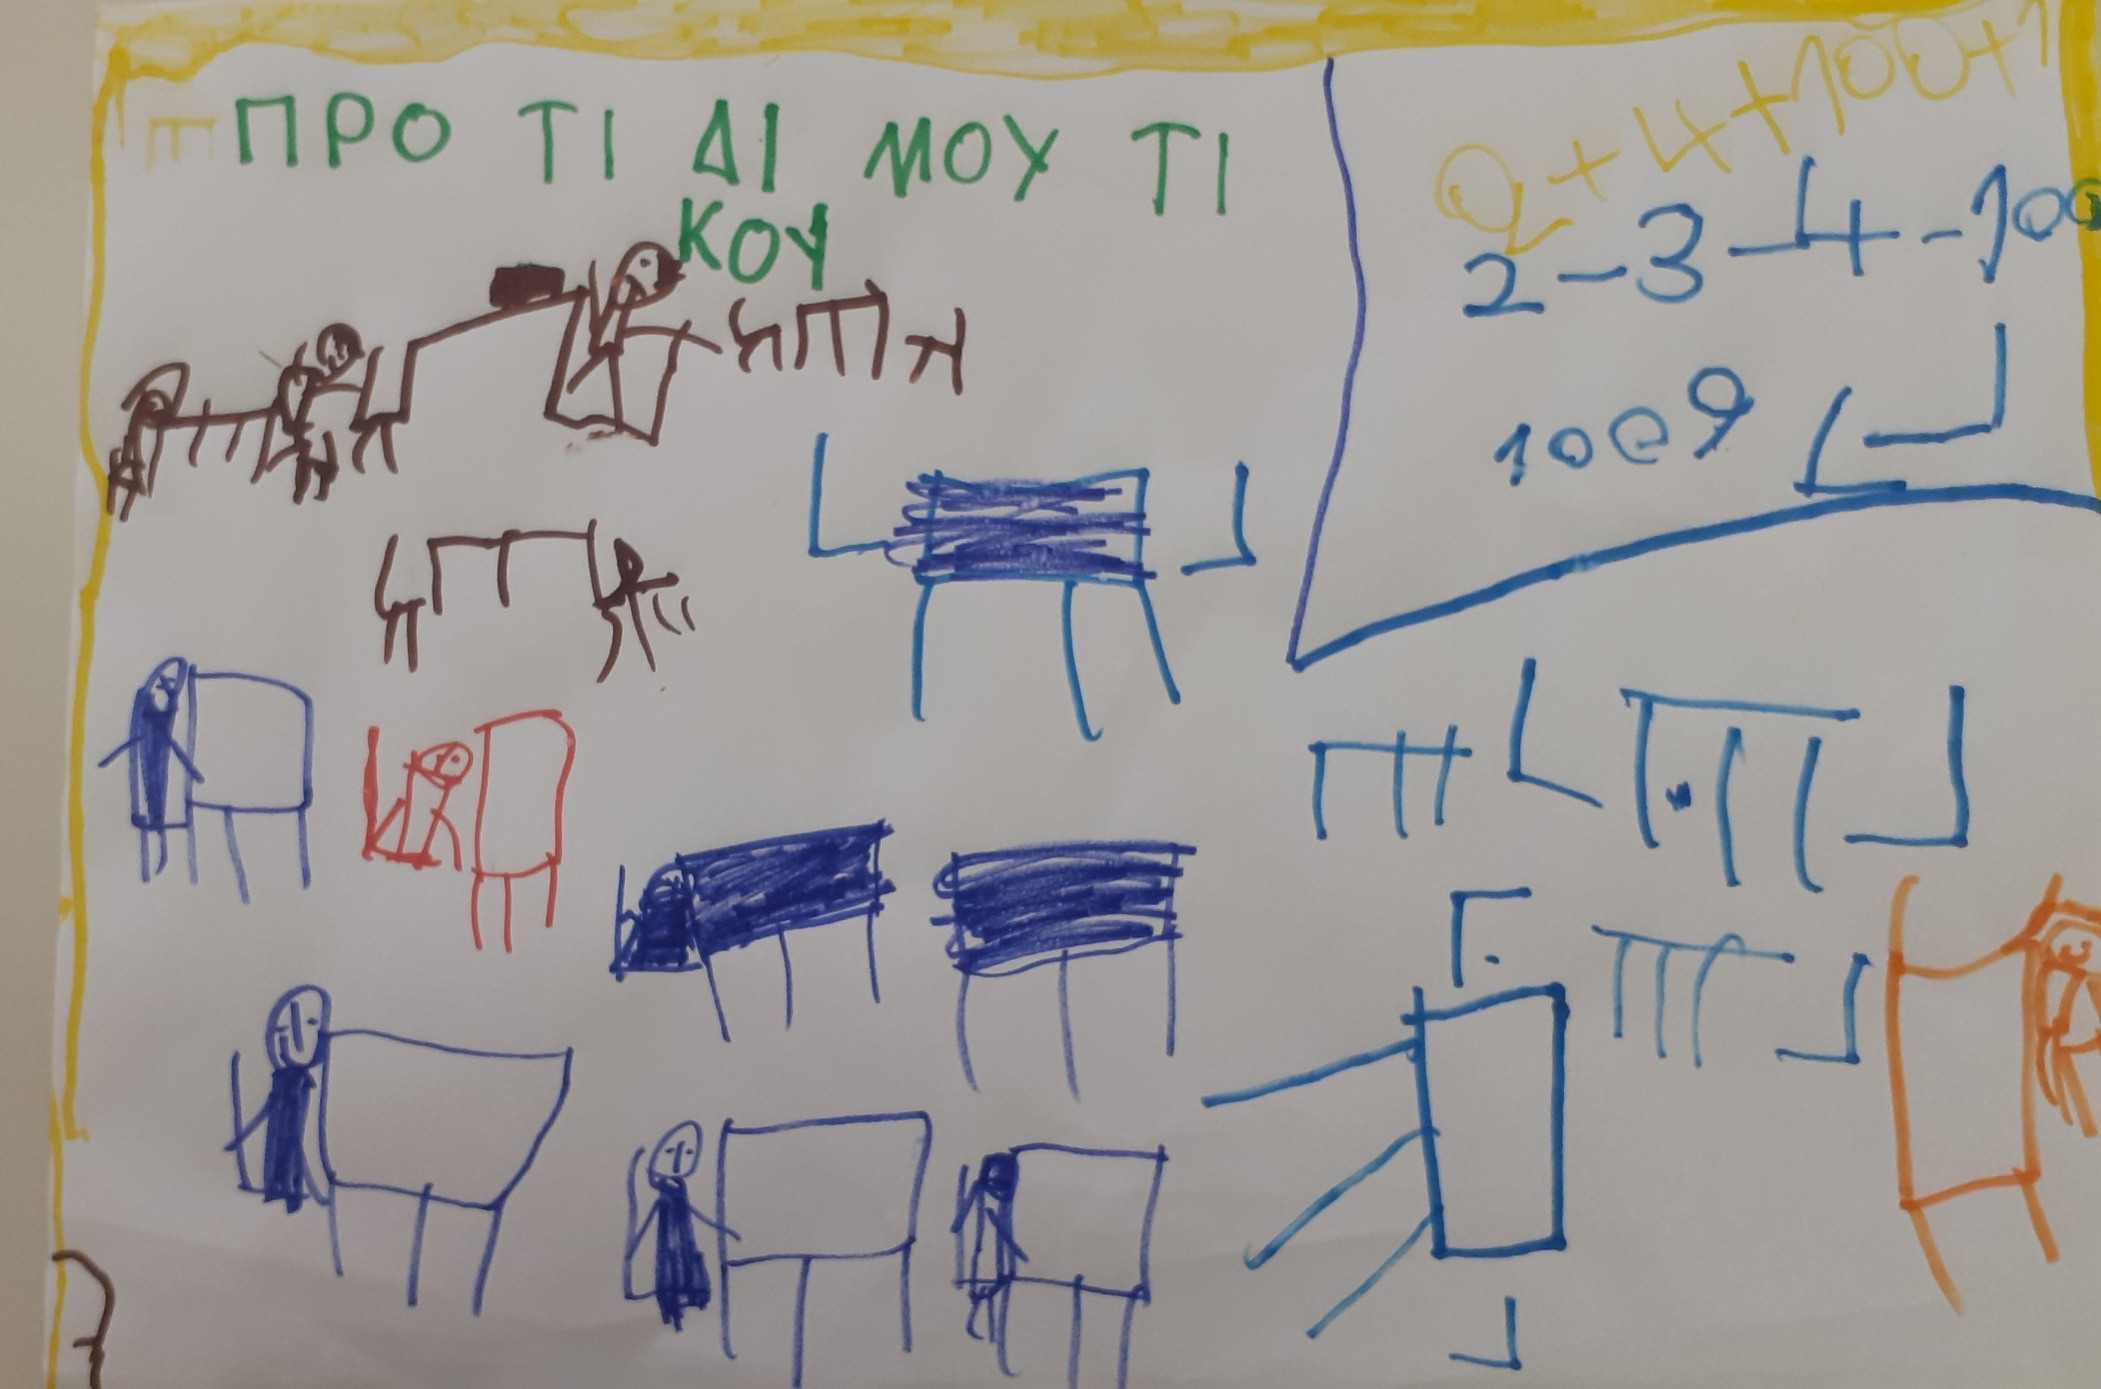 ΠΡΟ ΤΙ ΔΙ ΜΟΥ ΤΙ
ΚΟΥ
2+4+100+1
2-3-4-100
1009